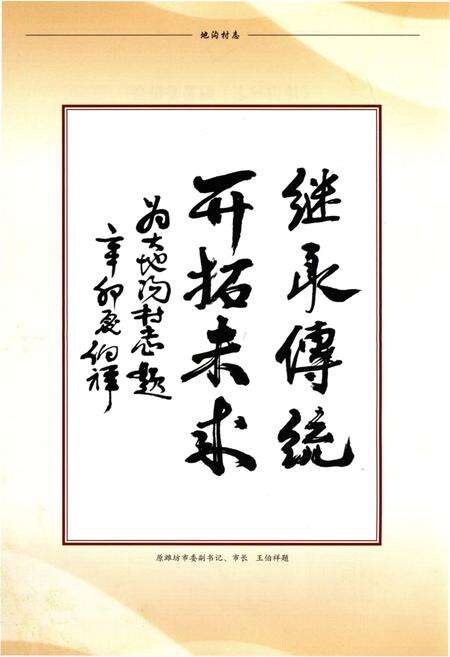 地沟村志
继承傳統
开拓未来
为大地沟村志题
辛卯夏伯祥
原潍坊市委副书记、市长 王伯祥题